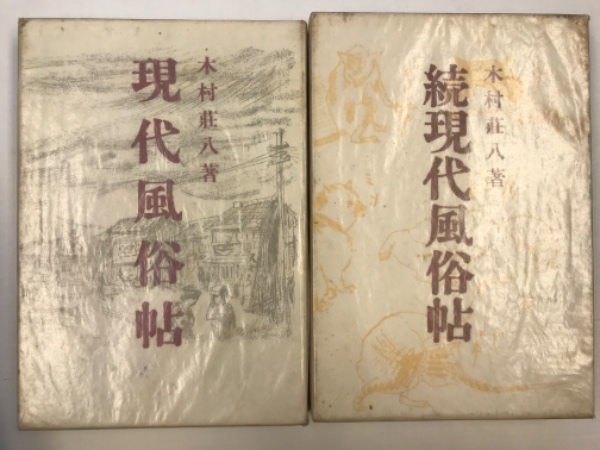 現代風俗帖
木村荘八著
続現代風俗帖
木村荘八著